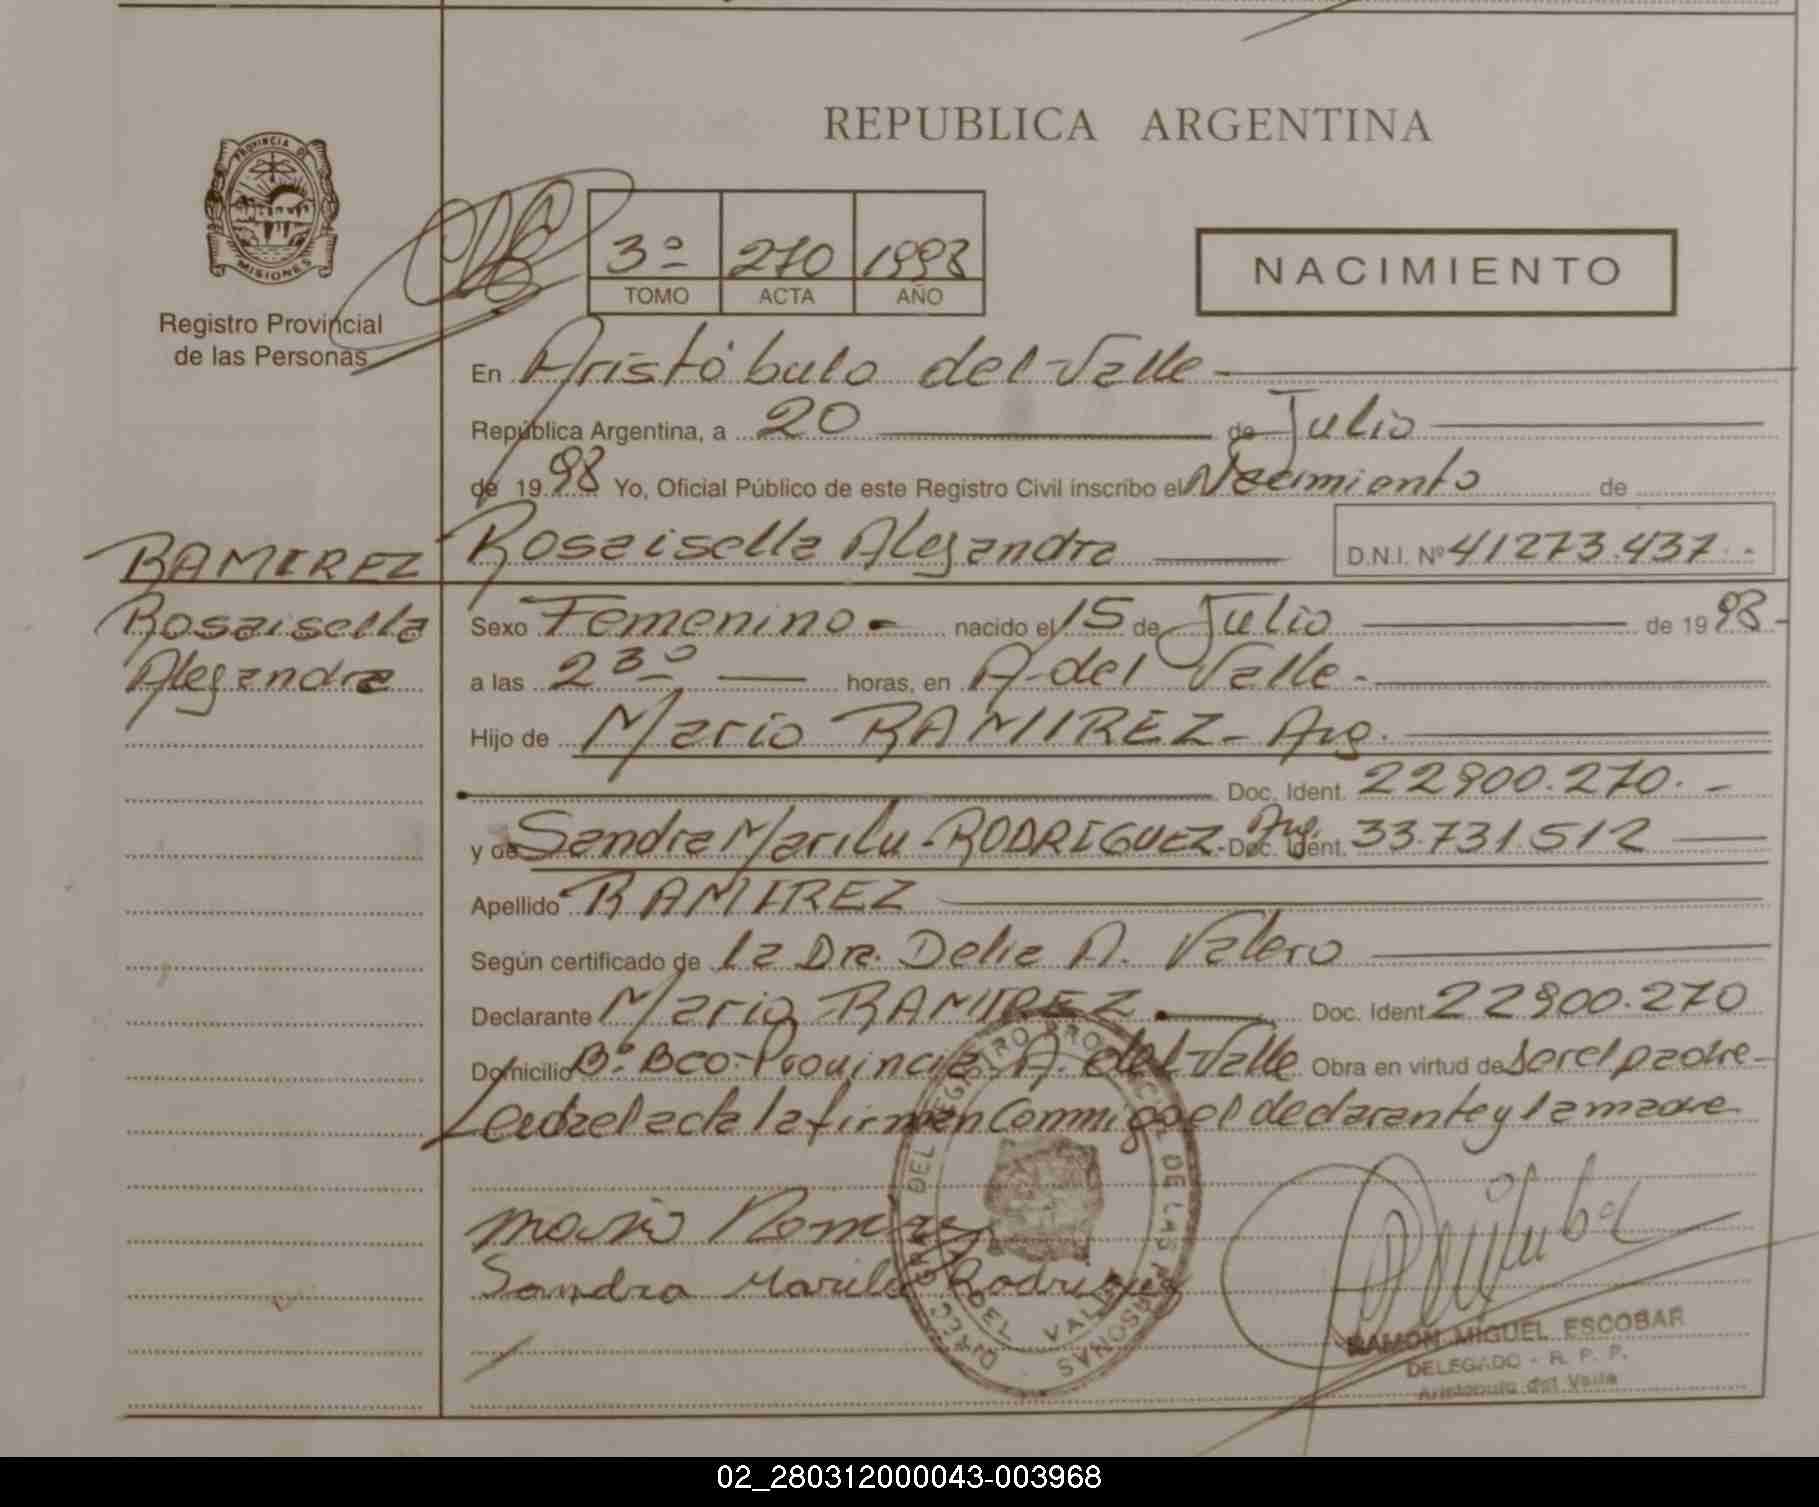 REPUBLICA ARGENTINA
PROVINCIA DE
MISIONES
Registro Provincial
de las Personas
3º 270 1998
TOMO ACTA AÑO
NACIMIENTO
En Aristóbulo del Valle
República Argentina, a 20 de Julio
de 1998 Yo, Oficial Público de este Registro Civil inscribo el Nacimiento de
RAMIREZ Rosaisella Alejandra D.N.I. Nº 41273.437
Rosaisella Sexo Femenino nacido el 15 de Julio de 1998
Alejandra a las 23º horas, en A. del Valle
Hijo de Mario RAMIREZ - Arg.
Doc. Ident. 22900.270
y de Sandra Marilu - RODRIGUEZ - Arg. Doc. Ident. 33.731.512
Apellido RAMIREZ
Según certificado de la Dra. Delia A. Valero
Declarante Mario RAMIREZ Doc. Ident 22900.270
Domicilio Bº. Bco. Provincia A. del Valle Obra en virtud de ser el padre
Leida el acta la firman conmigo el declarante y la madre
Mario Ramirez
Sandra Marilu Rodriguez
DEL REGISTRO PROVINCIAL DE LAS PERSONAS
DEL VALLE
RAMON MIGUEL ESCOBAR
DELEGADO - R. P. P.
Aristobulo del Valle
02_280312000043-003968